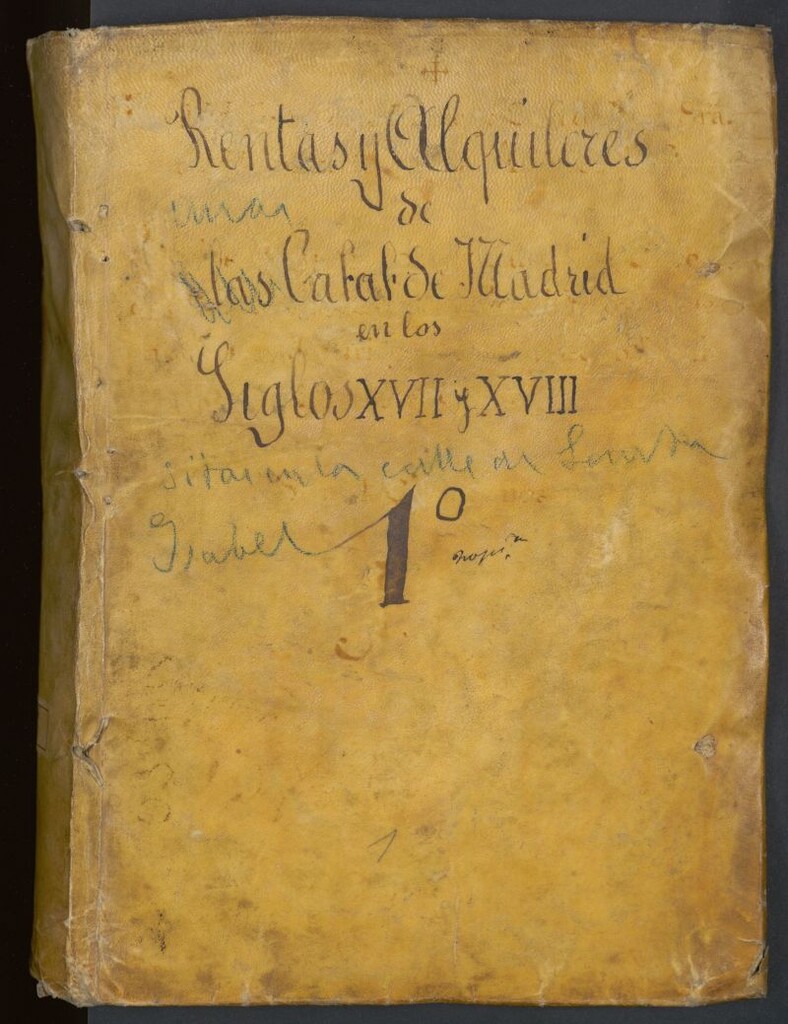 Rentas y Alquileres
de
las Casas de Madrid
en los
Siglos XVII y XVIII
sitas en la calle de Santa
1º
Isabel
1